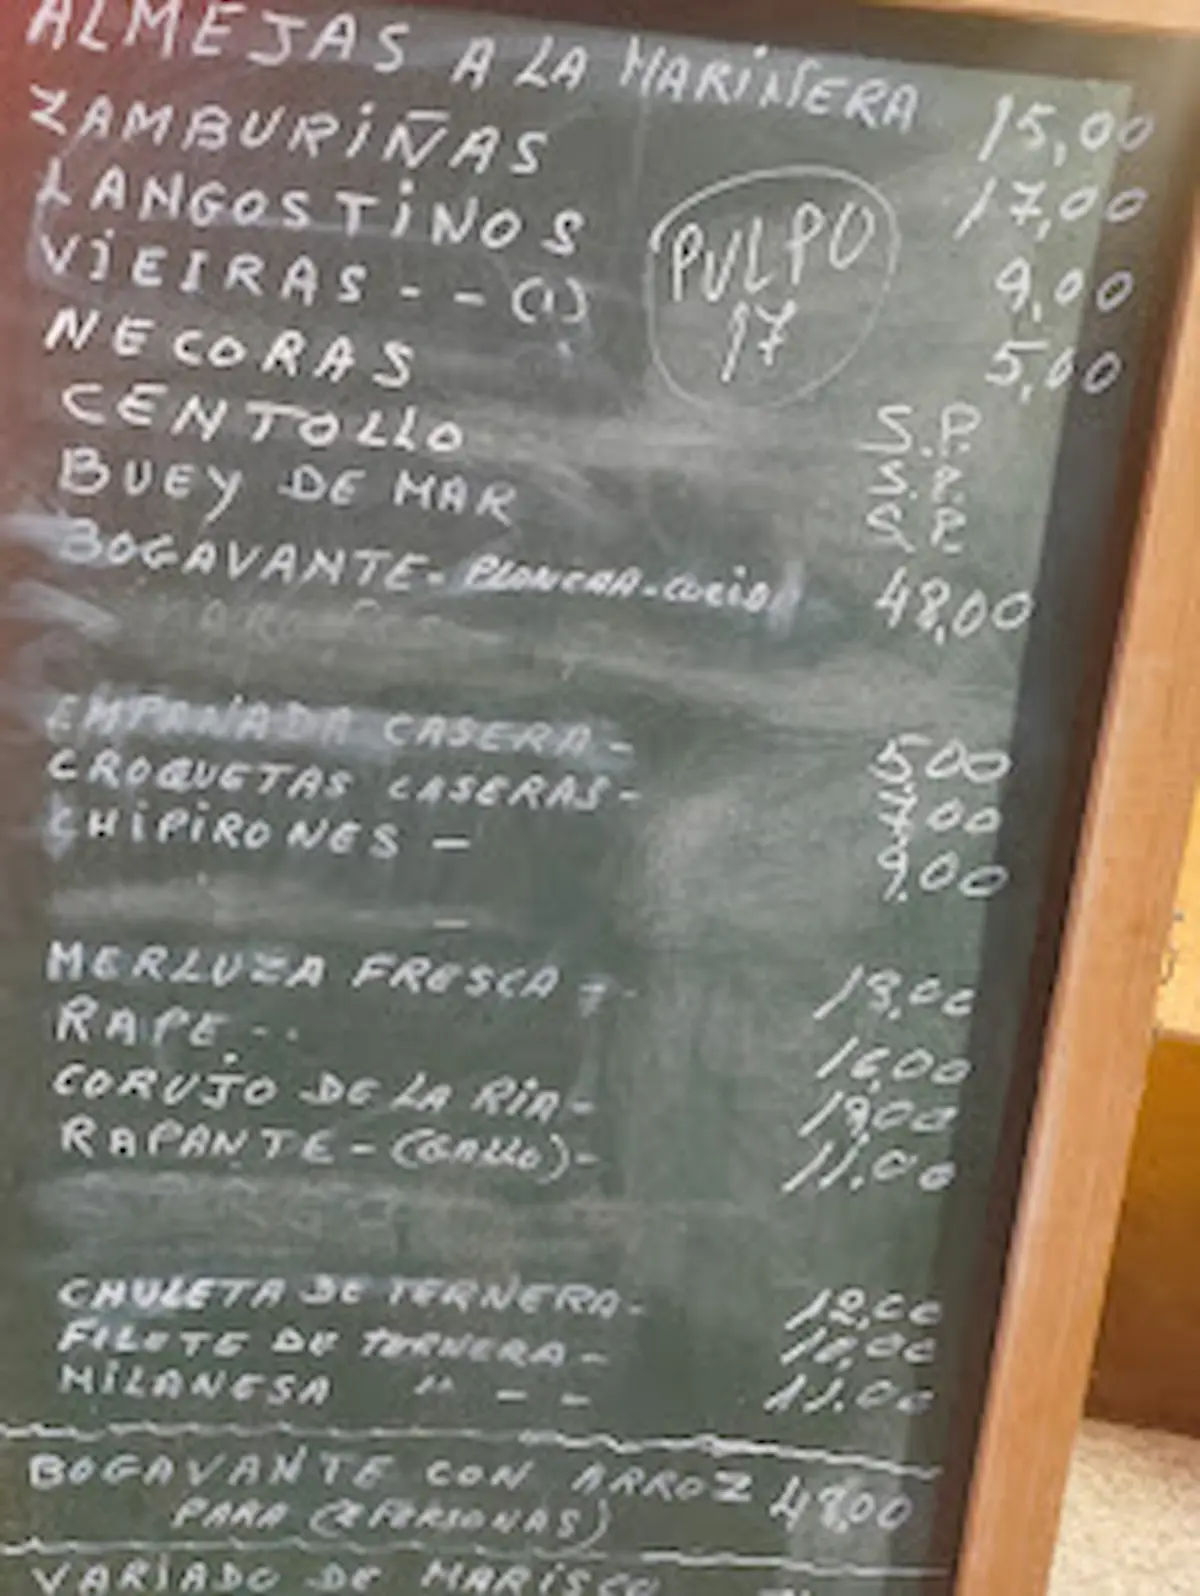 ALMEJAS A LA MARIÑERA 15,00
ZAMBURIÑAS 17,00
LANGOSTINOS 9,00
VIEIRAS - - (1) 5,00
PULPO
17
NECORAS S.P.
CENTOLLO S.P.
BUEY DE MAR S.P.
BOGAVANTE - PLANCHA - COCIDO 48,00
EMPANADA CASERA - 500
CROQUETAS CASERAS - 7,00
CHIPIRONES - 9,00
-
MERLUZA FRESCA - -
RAPE - - 16,00
CORUJO DE LA RIA -
RAPANTE - (GALLO) - 11,00
CHULETA DE TERNERA -
FILETE DE TERNERA -
MILANESA " - - 11.00
BOGAVANTE CON ARROZ 48,00
PARA (2 PERSONAS)
VARIADO DE MARISCO